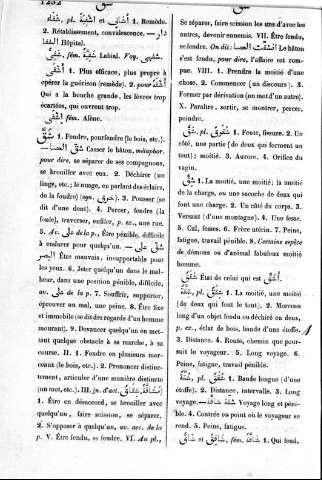 1252
شفاء, pl. أشفية et أشاف 1. Remède.
2. Rétablissement, convalescence. — دار
الشفا Hôpital.
شفهى, fém. Labial. Voy. شفهى
أشفى 1. Plus efficace, plus propre à
opérer la guérison (remède). 2. pour أشفه
Qui a la bouche grande, les lèvres trop
écartées, qui ouvrent trop.
إشفى fém. Alène.
شق 1. Fendre, pourfendre (le bois, etc.).
شق العصا Casser le bâton, métaphor.
pour dire, se séparer de ses compagnons,
se brouiller avec eux. 2. Déchirer (un
linge, etc.; le nuage, en parlant des éclairs,
de la foudre) syn. خرق. 3. Pousser (se
dit d'une dent). 4. Percer, fendre (la
foule), traverser, enfiler, p. ex., une rue.
5. Av. على de la p., Être pénible, difficile
à endurer pour quelqu'un. — شق على
البصر Être mauvais, insupportable pour
les yeux. 6. Jeter quelqu'un dans le mal-
heur, dans une position pénible, difficile,
av. على de la p. 7. Souffrir, supporter,
éprouver un mal, une peine. 8. Être fixe
et immobile (se dit des regards d'un homme
mourant). 9. Devancer quelqu'un en met-
tant quelque obstacle à sa marche, à sa
course. II. 1. Fendre en plusieurs mor-
ceaux (le bois, etc.). 2. Prononcer distinc-
tement, articuler d'une manière distincte
(un mot, etc.). III. (n. d'act. شقاق, مشاقة)
1. Être en désaccord, se brouiller avec
quelqu'un, faire scission, se séparer.
2. S'opposer à quelqu'un, av. acc. de la
p. V. Être fendu, se fendre. VI. Au pl.,
Se séparer, faire scission les uns d'avec les
autres, devenir ennemis. VII. Être fendu,
se fendre. On dit : انشقت العصا Le bâton
s'est fendu, pour dire, l'affaire est rom-
pue. VIII. 1. Prendre la moitié d'une
chose. 2. Commencer (un discours). 3.
Former par dérivation (un mot d'un autre).
X. Paraître, sortir, se montrer, percer,
poindre.
شق, pl. شقوق 1. Fente, fissure. 2. Un
côté, une partie (de deux qui forment un
tout); moitié. 3. Aurore. 4. Orifice du
vagin.
شق 1. La moitié, une moitié; la moitié
de la charge, ou une sacoche de deux qui
font une charge. 2. Un côté du corps. 3.
Versant (d'une montagne). 4. Une fesse.
5. Cul, fesses. 6. Frère utérin. 7. Peine,
fatigue, travail pénible. 8. Certaine espèce
de démons ou d'animal fabuleux moitié
homme.
شقق État de celui qui est أشق.
شقة, pl. شقق 1. La moitié, une moitié
(de deux qui font le tout). 2. Morceau
long d'un objet fendu ou déchiré en deux,
p. ex., éclat de bois, bande d'une étoffe.
3. Distance. 4. Route, chemin que pour-
suit le voyageur. 5. Long voyage. 6.
Peine, fatigue, travail pénible.
شقة, pl. شقق 1. Bande longue (d'une
étoffe). 2. Distance, intervalle. 3. Long
voyage. — شقة شاقة Voyage long et péni-
ble. 4. Contrée ou point où le voyageur se
rend. 5. Peine, fatigue.
شاق et شاقق, fém. شاقة 1. Qui fend,